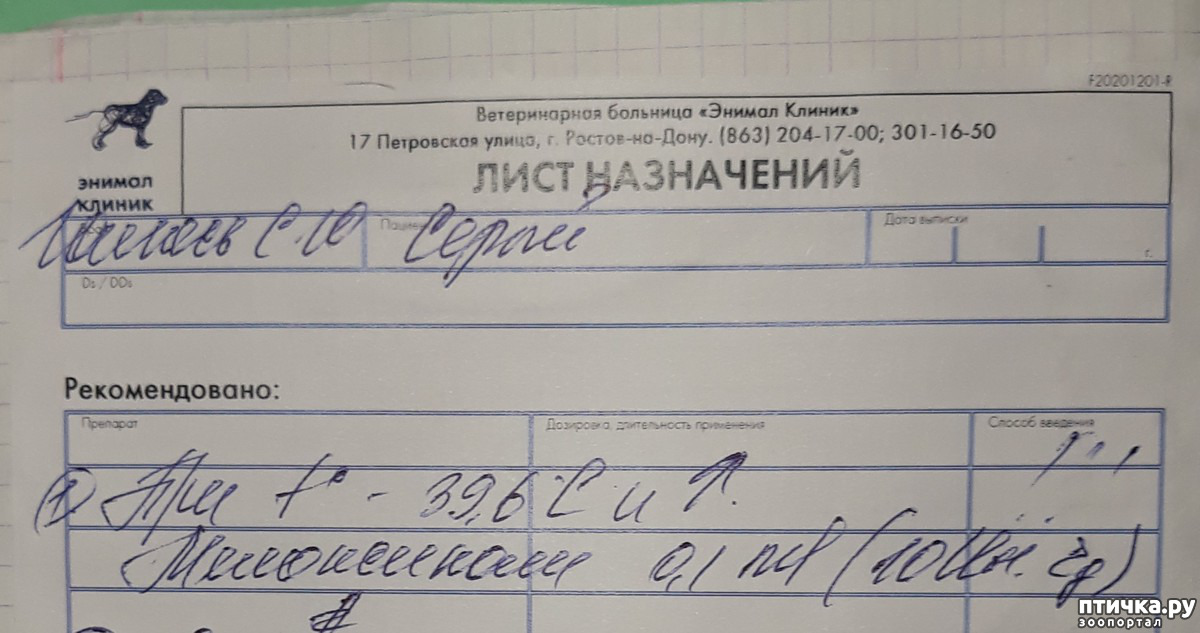 F20201201-R
Ветеринарная больница «Энимал Клиник»
17 Петровская улица, г. Ростов-на-Дону. (863) 204-17-00; 301-16-50
ЛИСТ НАЗНАЧЕНИЙ
ЭНИМАЛ
КЛИНИК
С.Ю Серый
Дата выписки
г.
Ds / DDs
Рекомендовано:
Препарат Дозировка, длительность применения Способ введения
① При t° - 39,6 С и ↑.
0,1 мл
птичка.ру
зоопортал